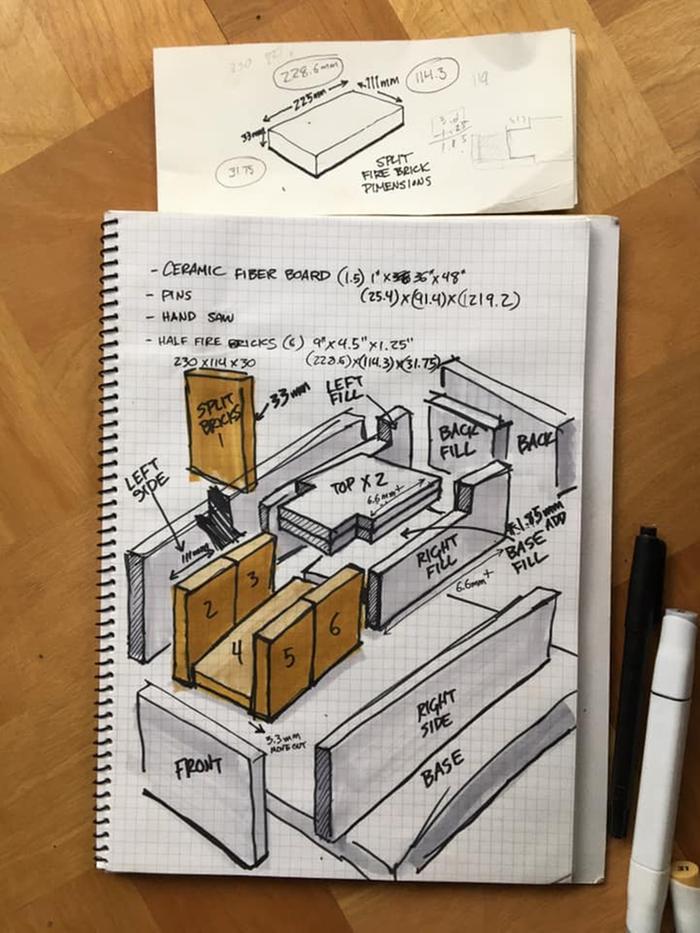 228.6mm
114.3
119
225mm
111mm
33mm
31.75
SPLIT
FIRE BRICK
DIMENSIONS
- CERAMIC FIBER BOARD (1.5) 1" X 36" X 48"
(25.4) X (91.4) X (1219.2)
- PINS
- HAND SAW
- HALF FIRE BRICKS (6) 9" X 4.5" X 1.25"
230 X 114 X 30
(228.6) X (114.3) X (31.75)
SPLIT
BRICKS
1
33mm
LEFT
FILL
BACK
FILL
BACK
LEFT
SIDE
TOP X 2
6.6mm+
111mm
*1.85mm
ADD
BASE
FILL
RIGHT
FILL
6.6mm+
2
3
4
5
6
3.3mm
MOVE OUT
FRONT
RIGHT
SIDE
BASE